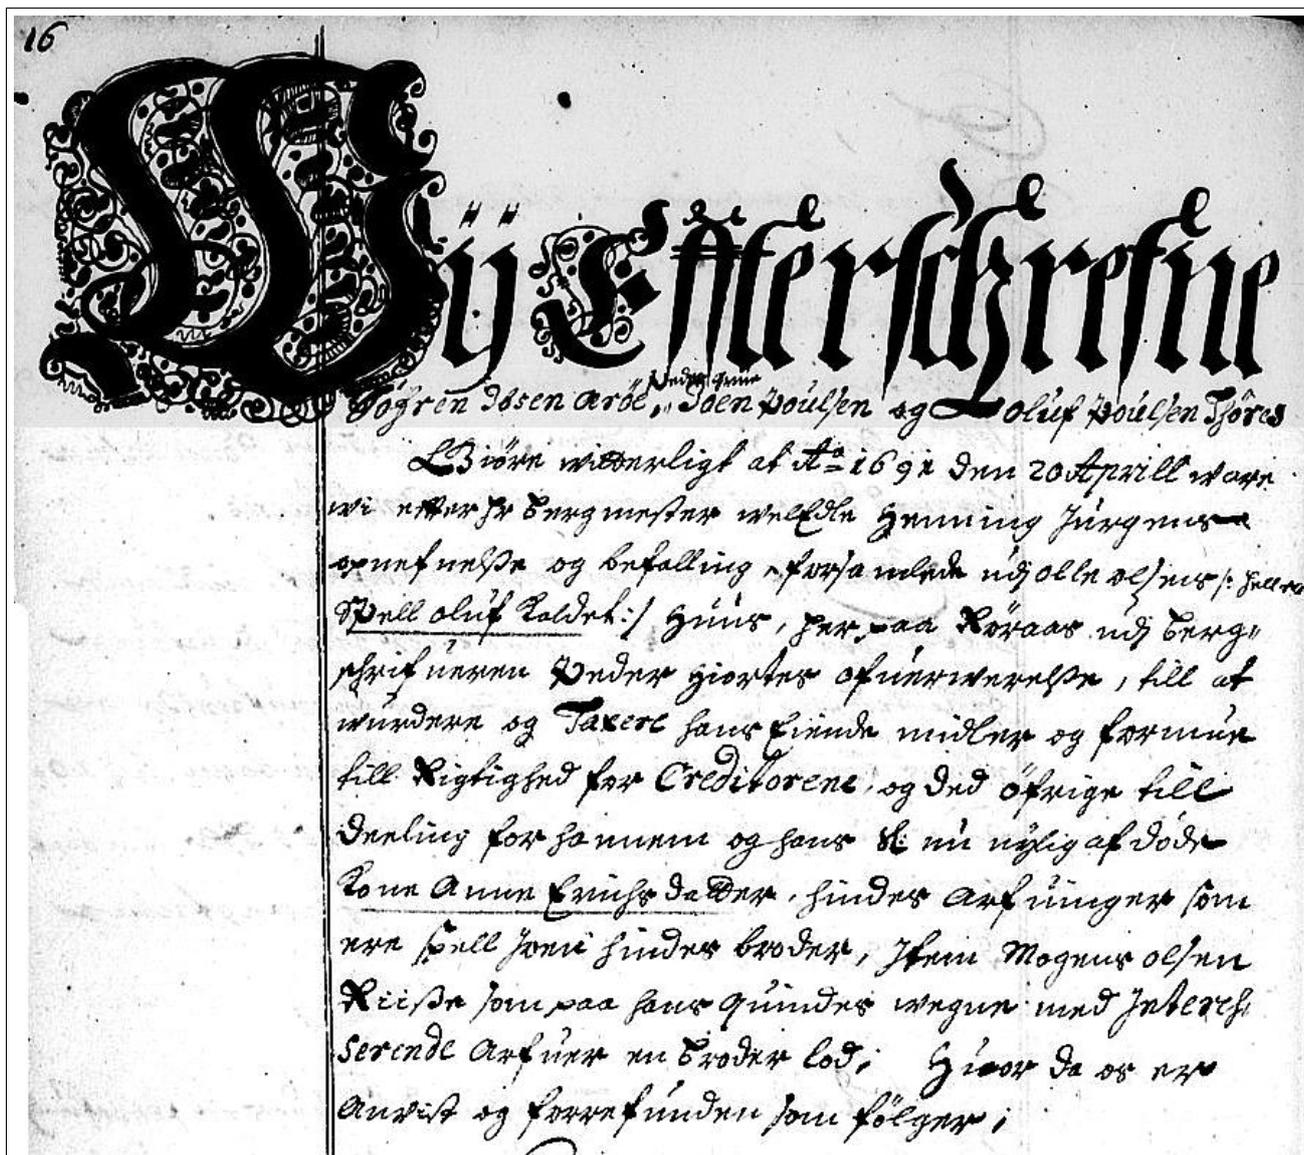 16
Wÿ Effterschrefne
Peder Grüe
Søfren Jbsen Arøe, Joen Poulsen og Oluf Poulsen Thøres
Giøre witterligt at Aō 1691 den 20 Aprill ware
wi effter Hr Bergmester welEdle Henning Jürgens
opnefnelße og befalling, forsamlede udj olle olsens /: heller
Spell oluf kaldet :/ Huus, her paa Röraas udj Berg-
schrifueren Peder Hiortes ofuerwerelße, till at
wurdere og Taxere hans Eiende midler og formue
till Rigtighed for Creditorene, og ded öfrige till
deeling for hannem og hans Sl: nu nylig afdöde
kone Anne Erichsdatter, hindes Arfuinger som
ere Spell Joen hindes broder, Jtem Mogens olsen
Riiße som paa hans quindes wegne med Jnteres-
serende Arfuer en Broder lod; Huor da os er
Anvist og forrefunden som fölger;